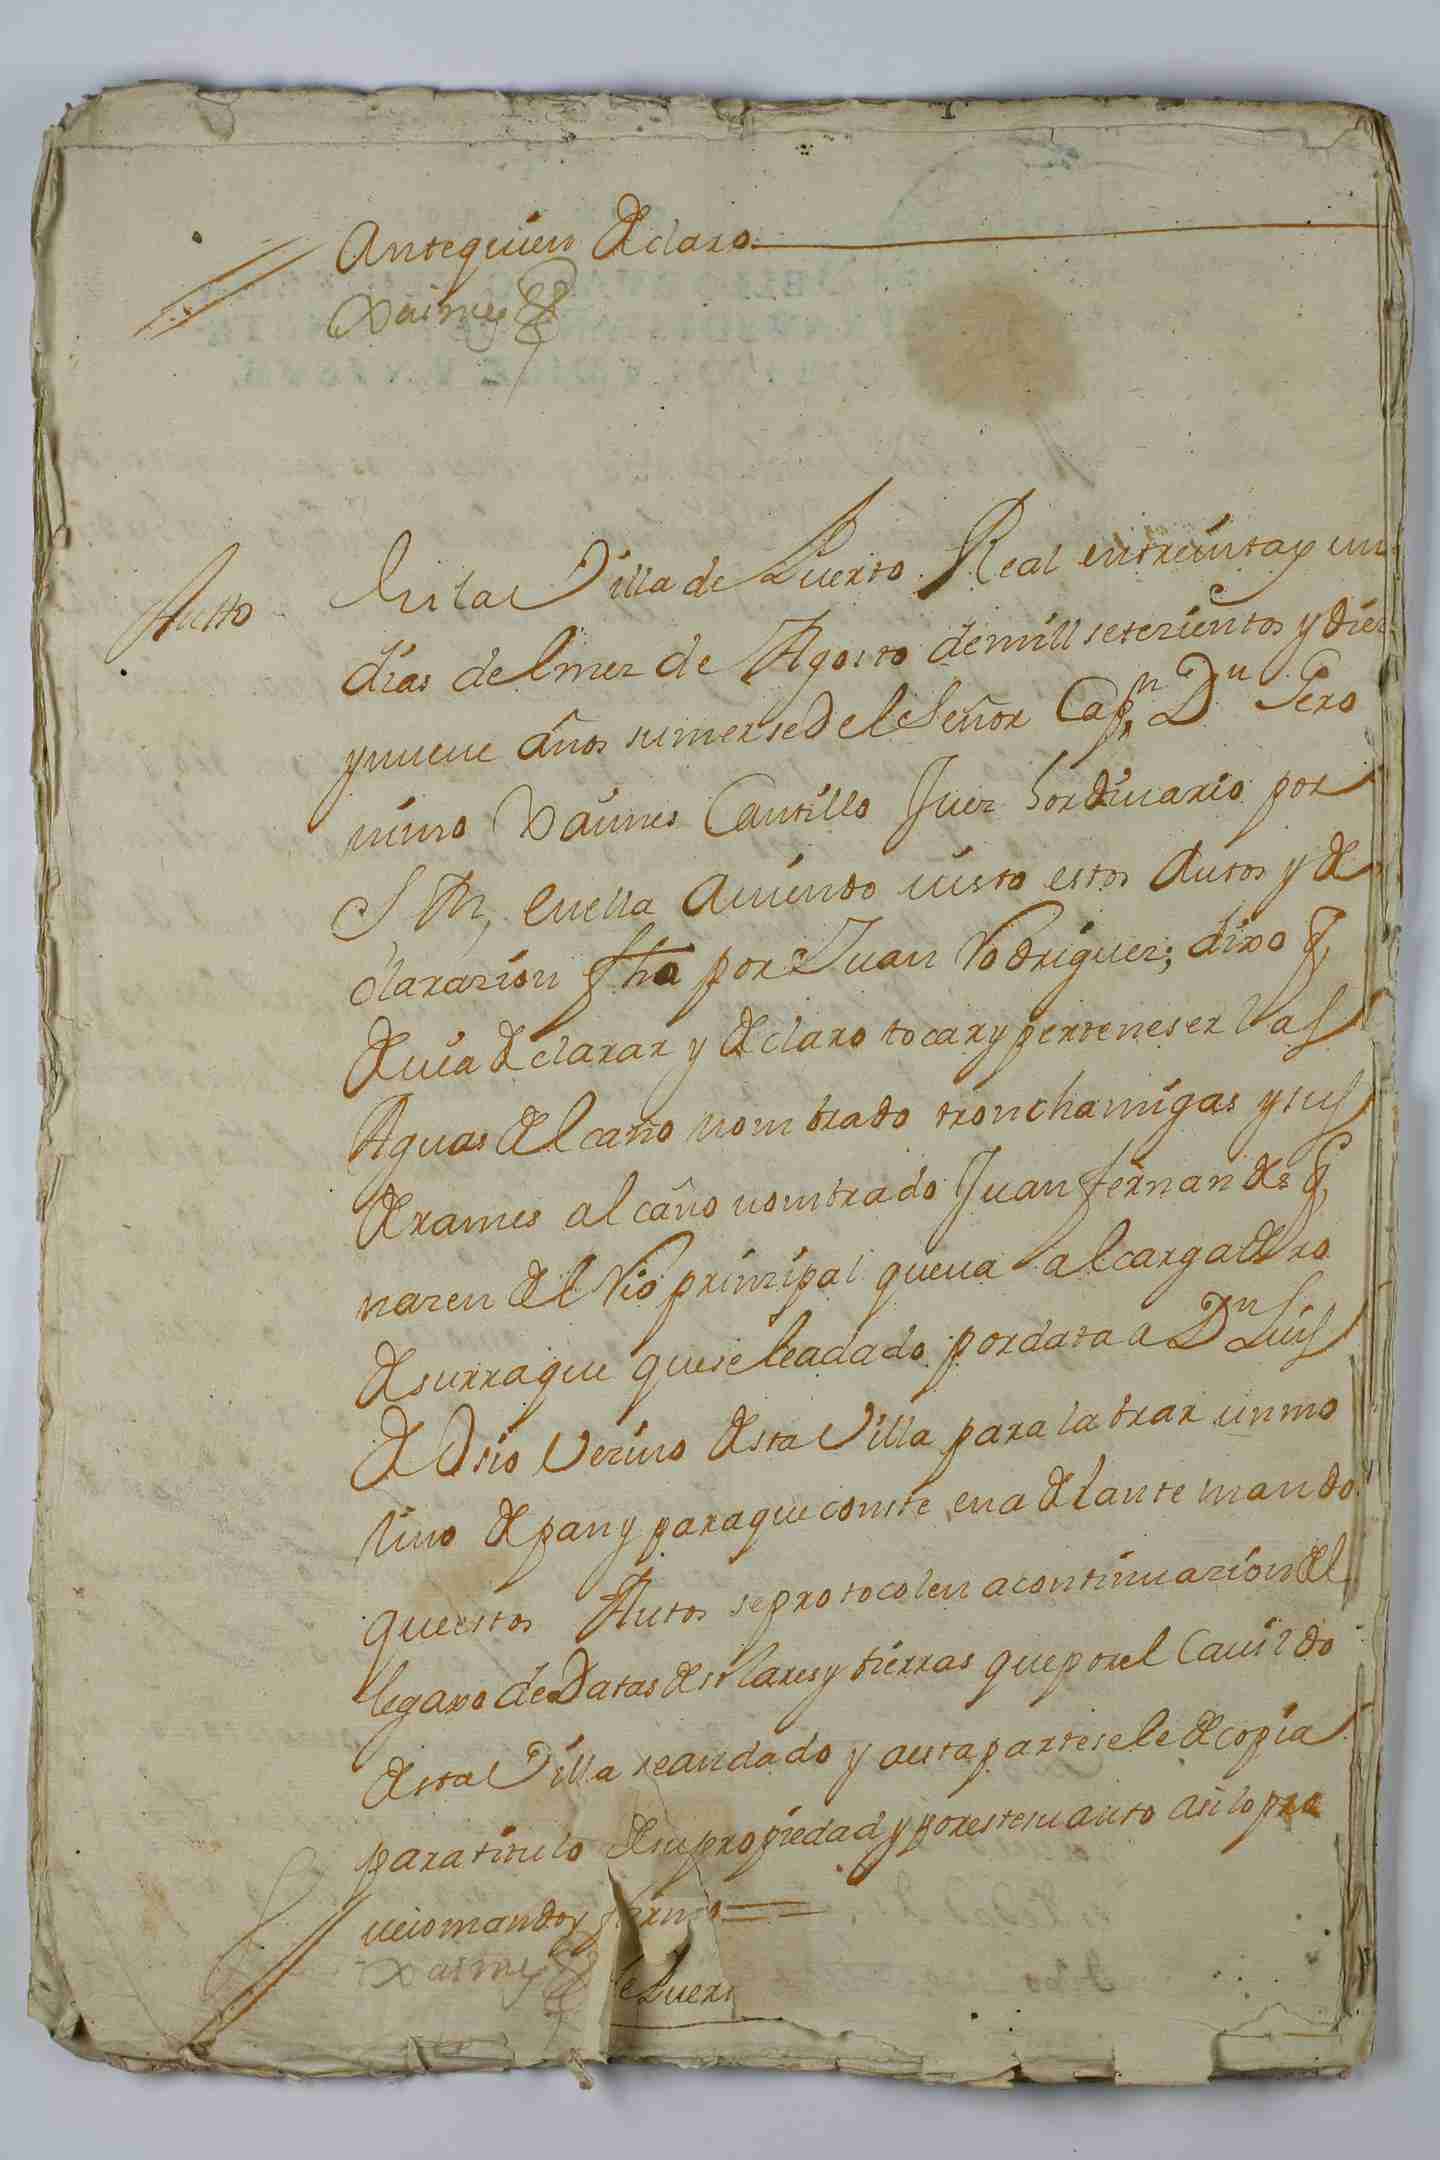 Antequien Declaro
Xaimes
Autto
En la Villa de Puerto Real en treinta y un
dias del mes de Agosto de mill setezientos y diez
y nueve años su mersed el Señor Capn Dn Gero
nimo Xaimes Cantillo Juez hordinario por
S M, en ella aviendo visto estos Autos y de
clarazion fha por Juan Rodriguez; dixo q
devia declarar y declaro tocar y perteneser las
Aguas del caño nombrado tronchamigas y sus
derames al caño nombrado Juan fernandes q
nazen del Rio prinzipal que va al cargadero
de surraque que se le a dado por data a Dn Luis
de Osio Vezino desta Villa para labrar un mo
lino de pan y para que conste en adelante mando
que estos Autos se protocolen a continuazion del
legaxo de Datas de solares y tierras que por el Cavildo
desta Villa se an dado y a esta parte se le de copia
para titulo de su propiedad y por este su auto asi lo pro
veio mando y firmo
Xaimes